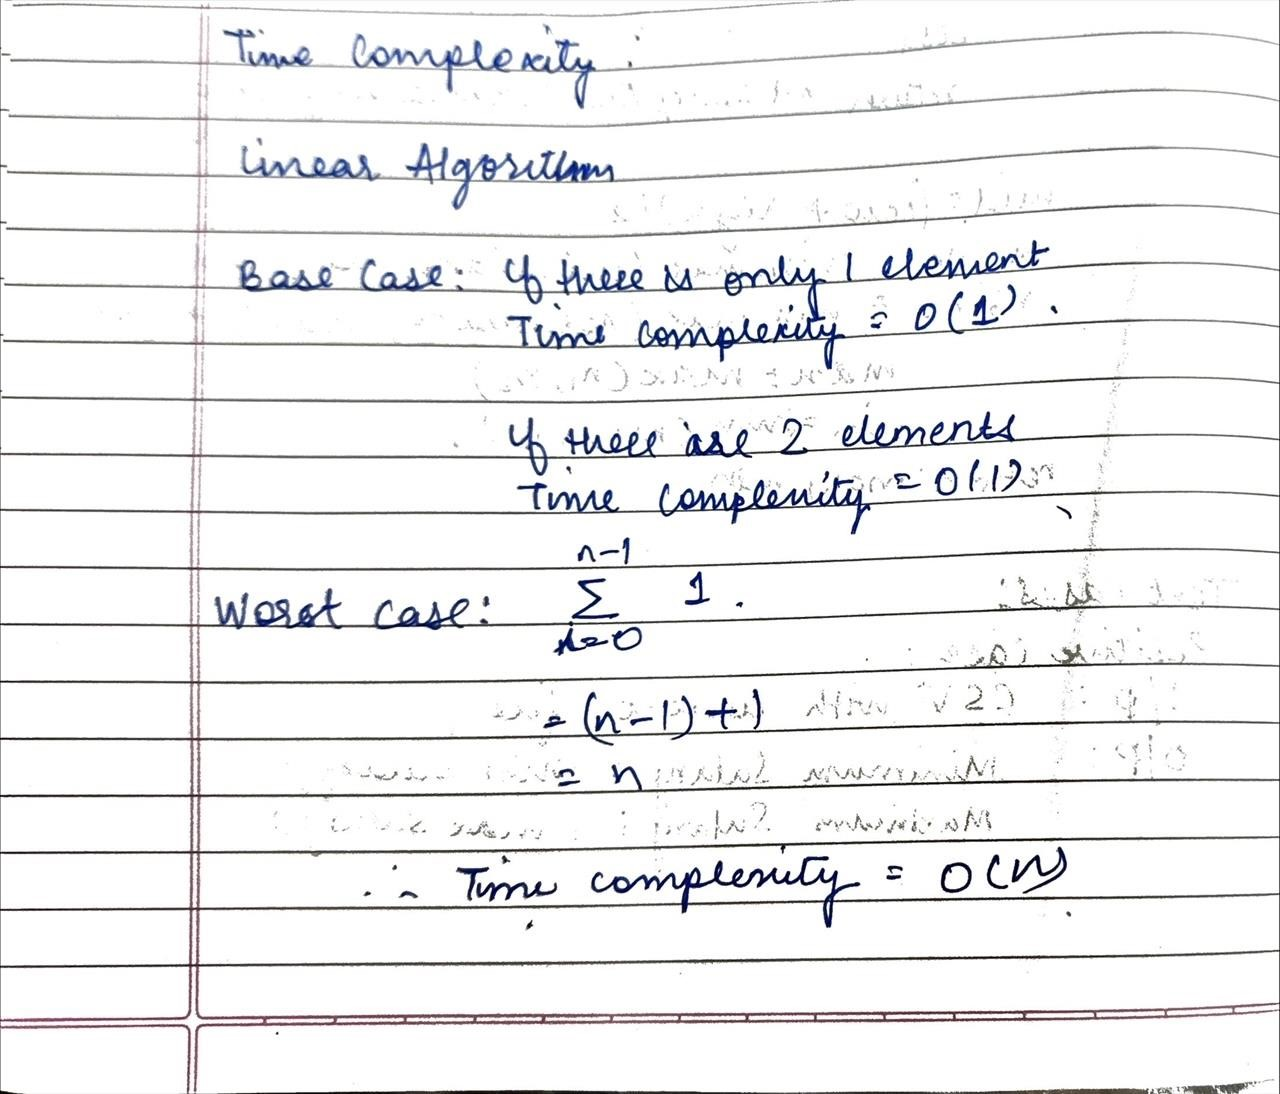 Time Complexity :
Linear Algorithm
Base Case: If there is only 1 element
Time complexity = O(1) .
If there are 2 elements
Time complexity = O(1)
n-1
Worst case: Σ 1 .
i=0
= (n-1)+1
= n
∴ Time complexity = O(n)